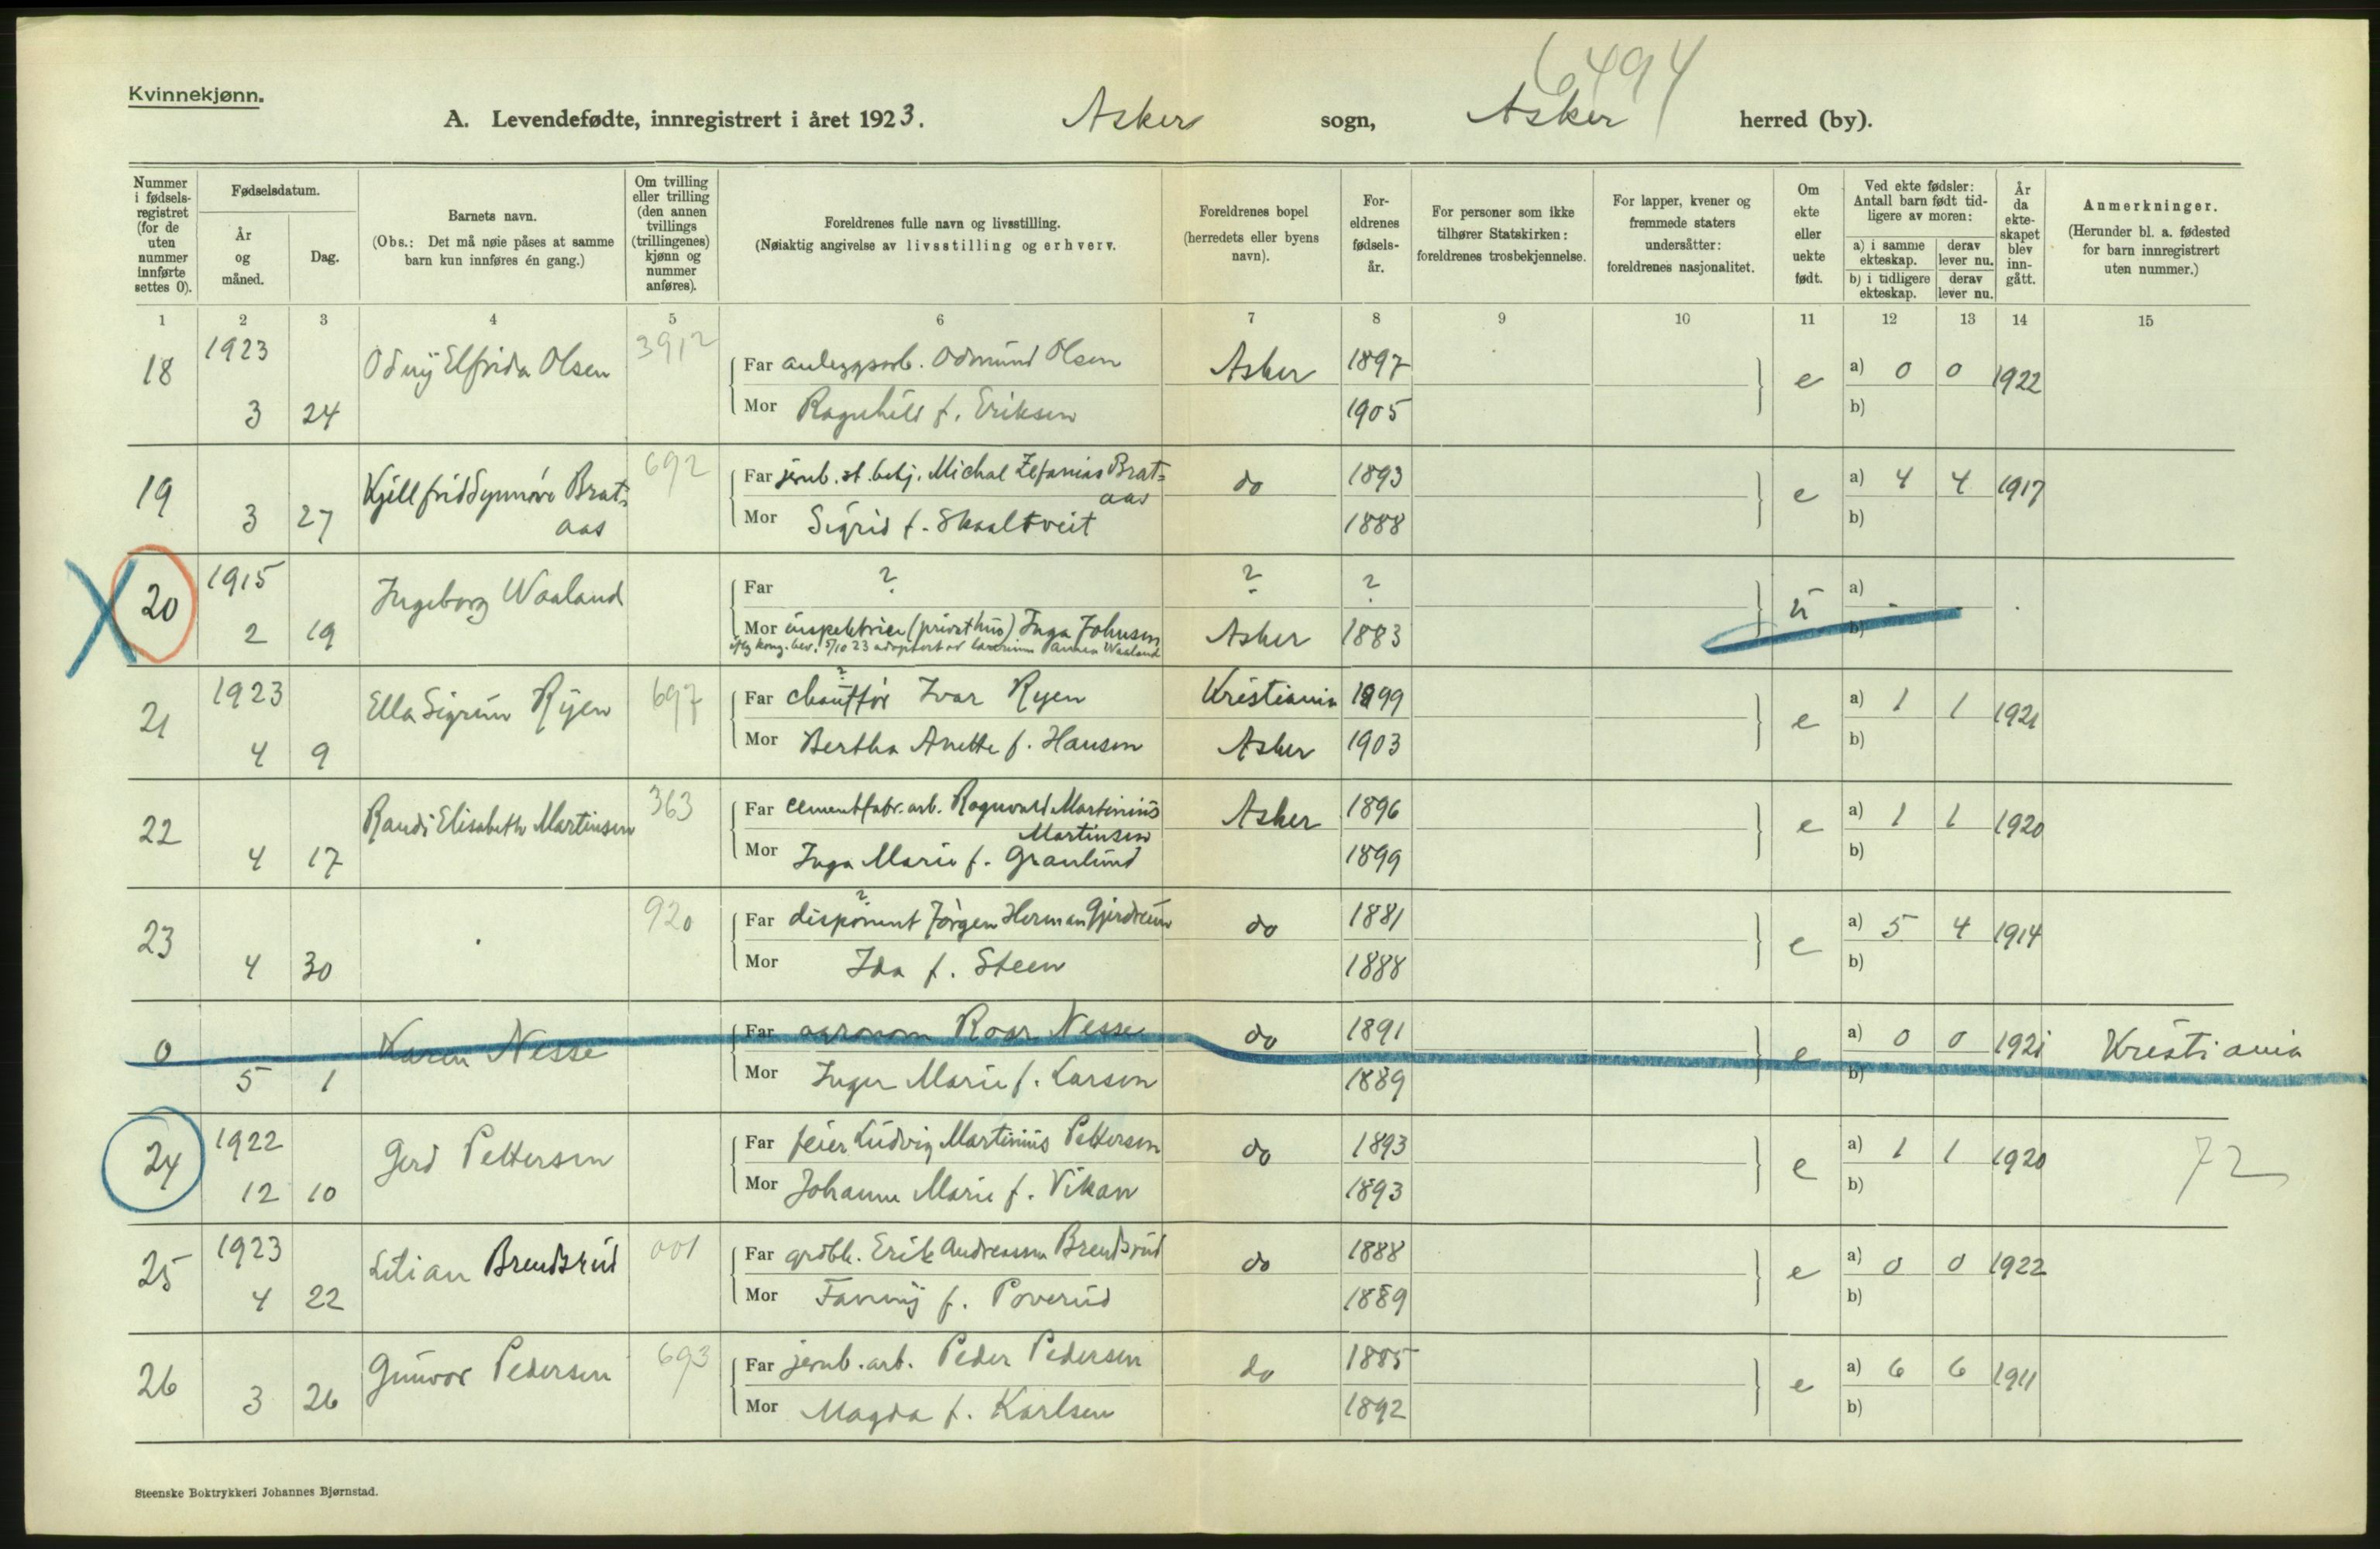 6494
Kvinnekjønn.
A. Levendefødte, innregistrert i året 1923. Asker sogn, Asker herred (by).
Nummer i fødsels-registret (for de uten nummer innførte settes 0).
Fødselsdatum.
År og måned.
Dag.
Barnets navn.
(Obs.: Det må nøie påses at samme barn kun innføres én gang.)
Om tvilling eller trilling (den annen tvillings (trillingenes) kjønn og nummer anføres).
Foreldrenes fulle navn og livsstilling.
(Nøiaktig angivelse av livsstilling og erhverv.
Foreldrenes bopel (herredets eller byens navn).
For-eldrenes fødsels-år.
For personer som ikke tilhører Statskirken: foreldrenes trosbekjennelse.
For lapper, kvener og fremmede staters undersåtter: foreldrenes nasjonalitet.
Om ekte eller uekte født.
Ved ekte fødsler: Antall barn født tid-ligere av moren:
a) i samme ekteskap.
derav lever nu.
b) i tidligere ekteskap.
derav lever nu.
År da ekte-skapet blev inn-gått.
Anmerkninger.
(Herunder bl. a. fødested for barn innregistrert uten nummer.)
1 2 3 4 5 6 7 8 9 10 11 12 13 14 15
18 1923 Odny Elfrida Olsen 3912 Far anleggsarb. Odmund Olsen Asker 1897 e a) 0 0 1922
3 24 Mor Ragnhild f. Eriksen 1905 b)
19 Kjellfrid Synnøve Brat- 692 Far jernb.st.betj. Michal Zefanias Brat- do 1893 e a) 4 4 1917
aas
3 27 aas Mor Sigrid f. Skaaltveit 1888 b)
20 1915 Ingeborg Waaland Far ? ? ? u a) -
2 19 Mor inspektrice (privathus) Inga Johnsen Asker 1883 b)
iflg kong. bev. 5/10 23 adoptert av lærerinne Anna Waaland
21 1923 Ella Sigrun Ryen 697 Far chauffør ? Ivar Ryen Kristiania 1899 e a) 1 1 1921
4 9 Mor Bertha Anette f. Hansen Asker 1903 b)
22 Randi Elisabeth Martinsen 363 Far cementfabr.arb. Ragnvald Martinius Asker 1896 e a) 1 1 1920
Martinsen
4 17 Mor Inga Marie f. Granlund 1899 b)
23 920 Far disponent ? Jørgen Herman Gjerdrum do 1881 e a) 5 4 1914
4 30 Mor Ida f. Steen 1888 b)
0 Karen Nesse Far agronom Roar Nesse do 1891 e a) 0 0 1921 Kristiania
5 1 Mor Inger Marie f. Larsen 1889 b)
24 1922 Gerd Pettersen Far feier Ludvig Martinius Pettersen do 1893 e a) 1 1 1920 72
12 10 Mor Johanne Marie f. Vikan 1893 b)
25 1923 Lilian Brendsrud 001 Far grdbr. Erik Andreassen Brendsrud do 1888 e a) 0 0 1922
4 22 Mor Fanny f. Poverud 1889 b)
26 Gunvor Pedersen 693 Far jernb.arb. Peder Pedersen do 1885 e a) 6 6 1911
3 26 Mor Magda f. Karlsen 1892 b)
Steenske Boktrykkeri Johannes Bjørnstad.